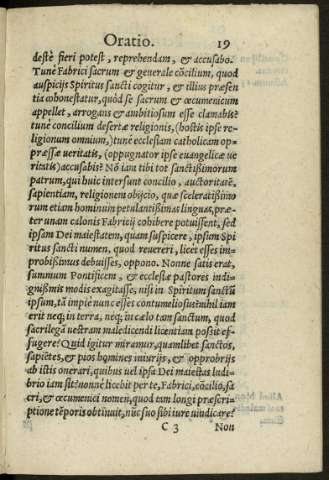 Oratio. 19
destè fieri potest, reprehendam, & accusabo.
Tunè Fabrici sacrum & generale cõcilium, quod
auspicijs Spiritus sancti cogitur, & illius præsen
tia cohonestatur, quòd se sacrum & œcumenicum
appellet, arrogans & ambitiosum esse clamabis?
tunè concilium desertæ religionis, (hostis ipse re-
ligionum omnium,) tunè ecclesiam catholicam op-
præssæ ueritatis, (oppugnator ipse euangelicæ ue
ritatis) accusabis? Nõ iam tibi tot sanctißimorum
patrum, qui huic intersunt concilio, auctoritatẽ,
sapientiam, religionem obijcio, quæ sceleratißimo
rum etiam hominum petulantißimas linguas, præ-
ter unam calonis Fabricij cohibere potuissent, sed
ipsam Dei maiestatem, quam suspicere, ipsum Spi
ritus sancti numen, quod reuereri, licet esses im-
probißimus debuisses, oppono. Nonne satis erat,
summum Pontificem, & ecclesiæ pastores indi-
gnißimis modis exagitasse, nisi in Spiritum sanctũ
ipsum, tã impie nunc esses contumeliosus? nihil iam
erit neq; in terra, neq; in cælo tam sanctum, quod
sacrilegã uestram maledicendi licentiam poßit ef-
fugere? Quid igitur miramur, quamlibet sanctos,
sapiẽtes, & pios homines iniurijs, & opprobrijs
ab istis onerari, quibus uel ipsa Dei maiestas ludi-
brio iam sit? nonne licebit per te, Fabrici, cõcilio, sa
cri, & œcumenici nomen, quod tam longi præscri-
ptione tẽporis obtinuit, nũc suo sibi iure uindicare?
C 3 Non